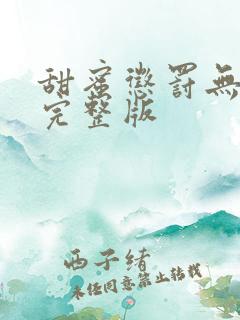 甜蜜惩罚无
完整版
西子绪
未经同意禁止转载